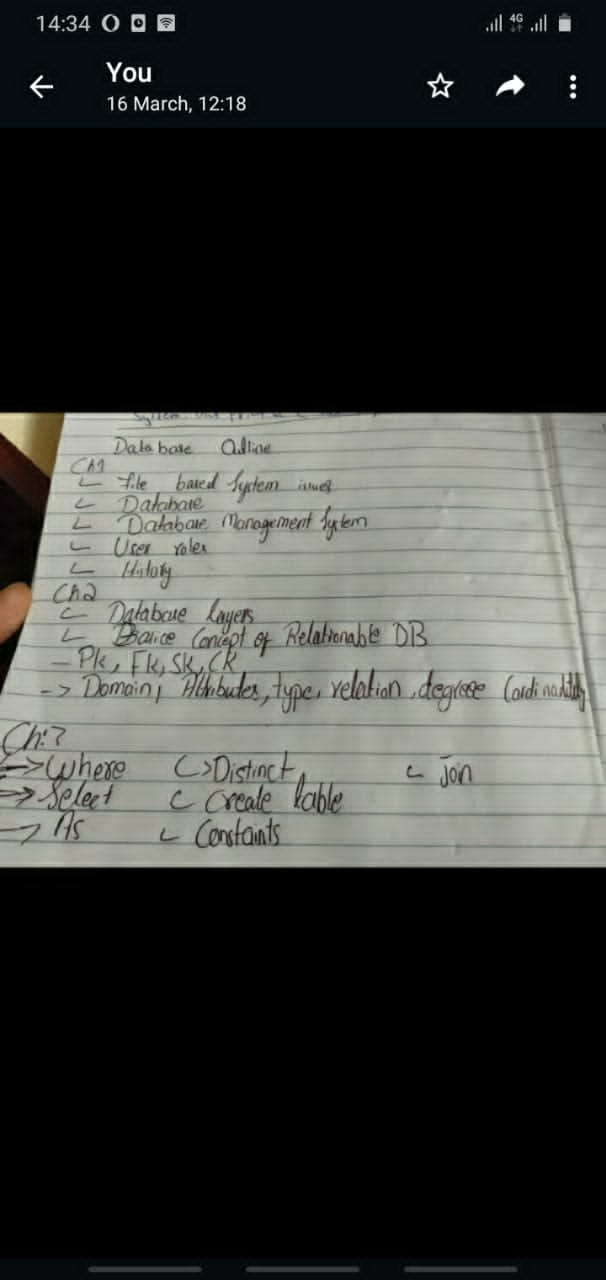 14:34
4G
You
16 March, 12:18
Data base Outline
Ch1
File based System issues
Database
Database Management System
User roles
History
Ch2
Database layers
Basice Concept of Relationable DB
- Pk, Fk, Sk, Ck
-> Domain, Attributes, type, relation, degreee
Ch:3
-> Where -> Distinct join
-> Select Create table
-> As Constaints